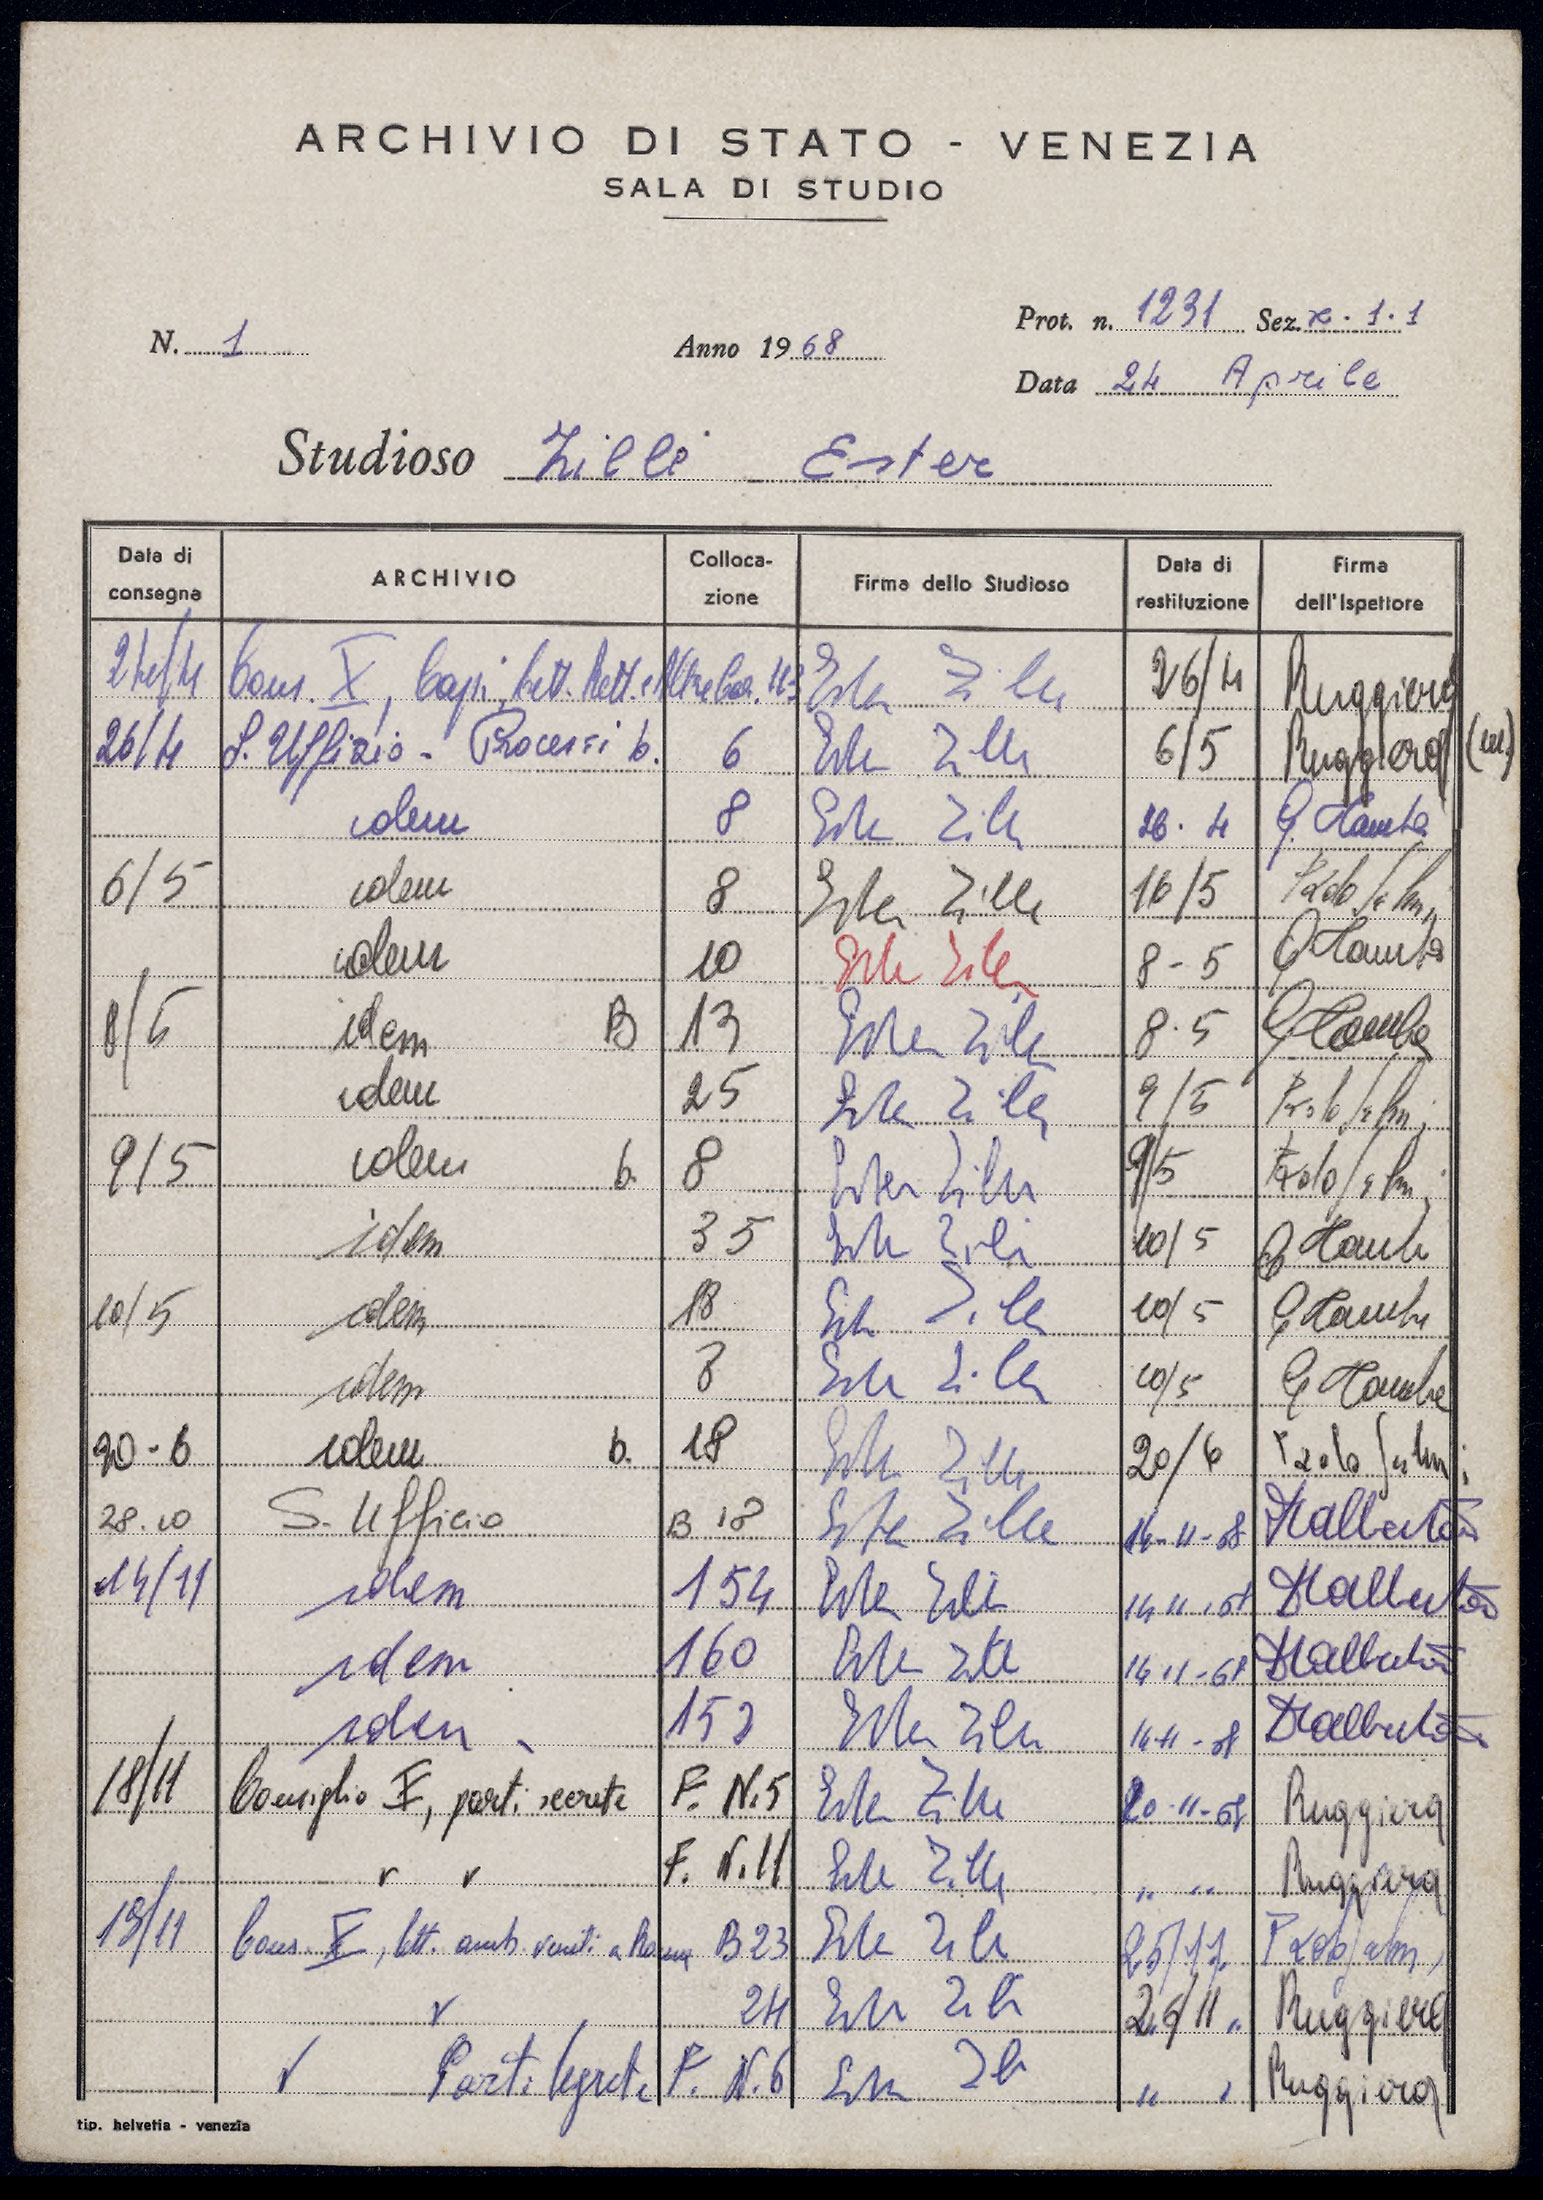 ARCHIVIO DI STATO - VENEZIA
SALA DI STUDIO
N. 1 Anno 1968 Prot. n. 1231 Sez. x. 1. 1
Data 24 Aprile
Studioso Zilli Ester
Data di consegna ARCHIVIO Collocazione Firma dello Studioso Data di restituzione Firma dell'Ispettore
24/4 Cons. X, Capi, lett. Rett. Ester Zilli 26/4 Ruggiero
26/4 S. Uffizio - Processi b. 6 Ester Zilli 6/5 Ruggiero
idem 8 Ester Zilli 26. 4
6/5 idem 8 Ester Zilli 16/5
idem 10 Ester Zilli 8-5
8/5 idem B 13 Ester Zilli 8.5
idem 25 Ester Zilli 9/5
9/5 idem b. 8 Ester Zilli 9/5
idem 35 Ester Zilli 10/5
10/5 idem 18 Ester Zilli 10/5
idem 8 Ester Zilli 10/5
20-6 idem b. 18 Ester Zilli 20/6
28.10 S. Ufficio B 18 Ester Zilli 14-11-68
14/11 idem 154 Ester Zilli 14-11-68
idem 160 Ester Zilli 14-11-68
idem 153 Ester Zilli 14-11-68
18/11 Consiglio X, parti secrete F. N.5 Ester Zilli 20-11-68 Ruggiero
" " F. N. 11 Ester Zilli " " Ruggiero
19/11 Cons. X, lett. amb. veneti a Roma B 23 Ester Zilli 25/11
" 24 Ester Zilli 25/11 " Ruggiero
" Parti Segrete F. N.6 Ester Zilli " " Ruggiero
tip. helvetia - venezia